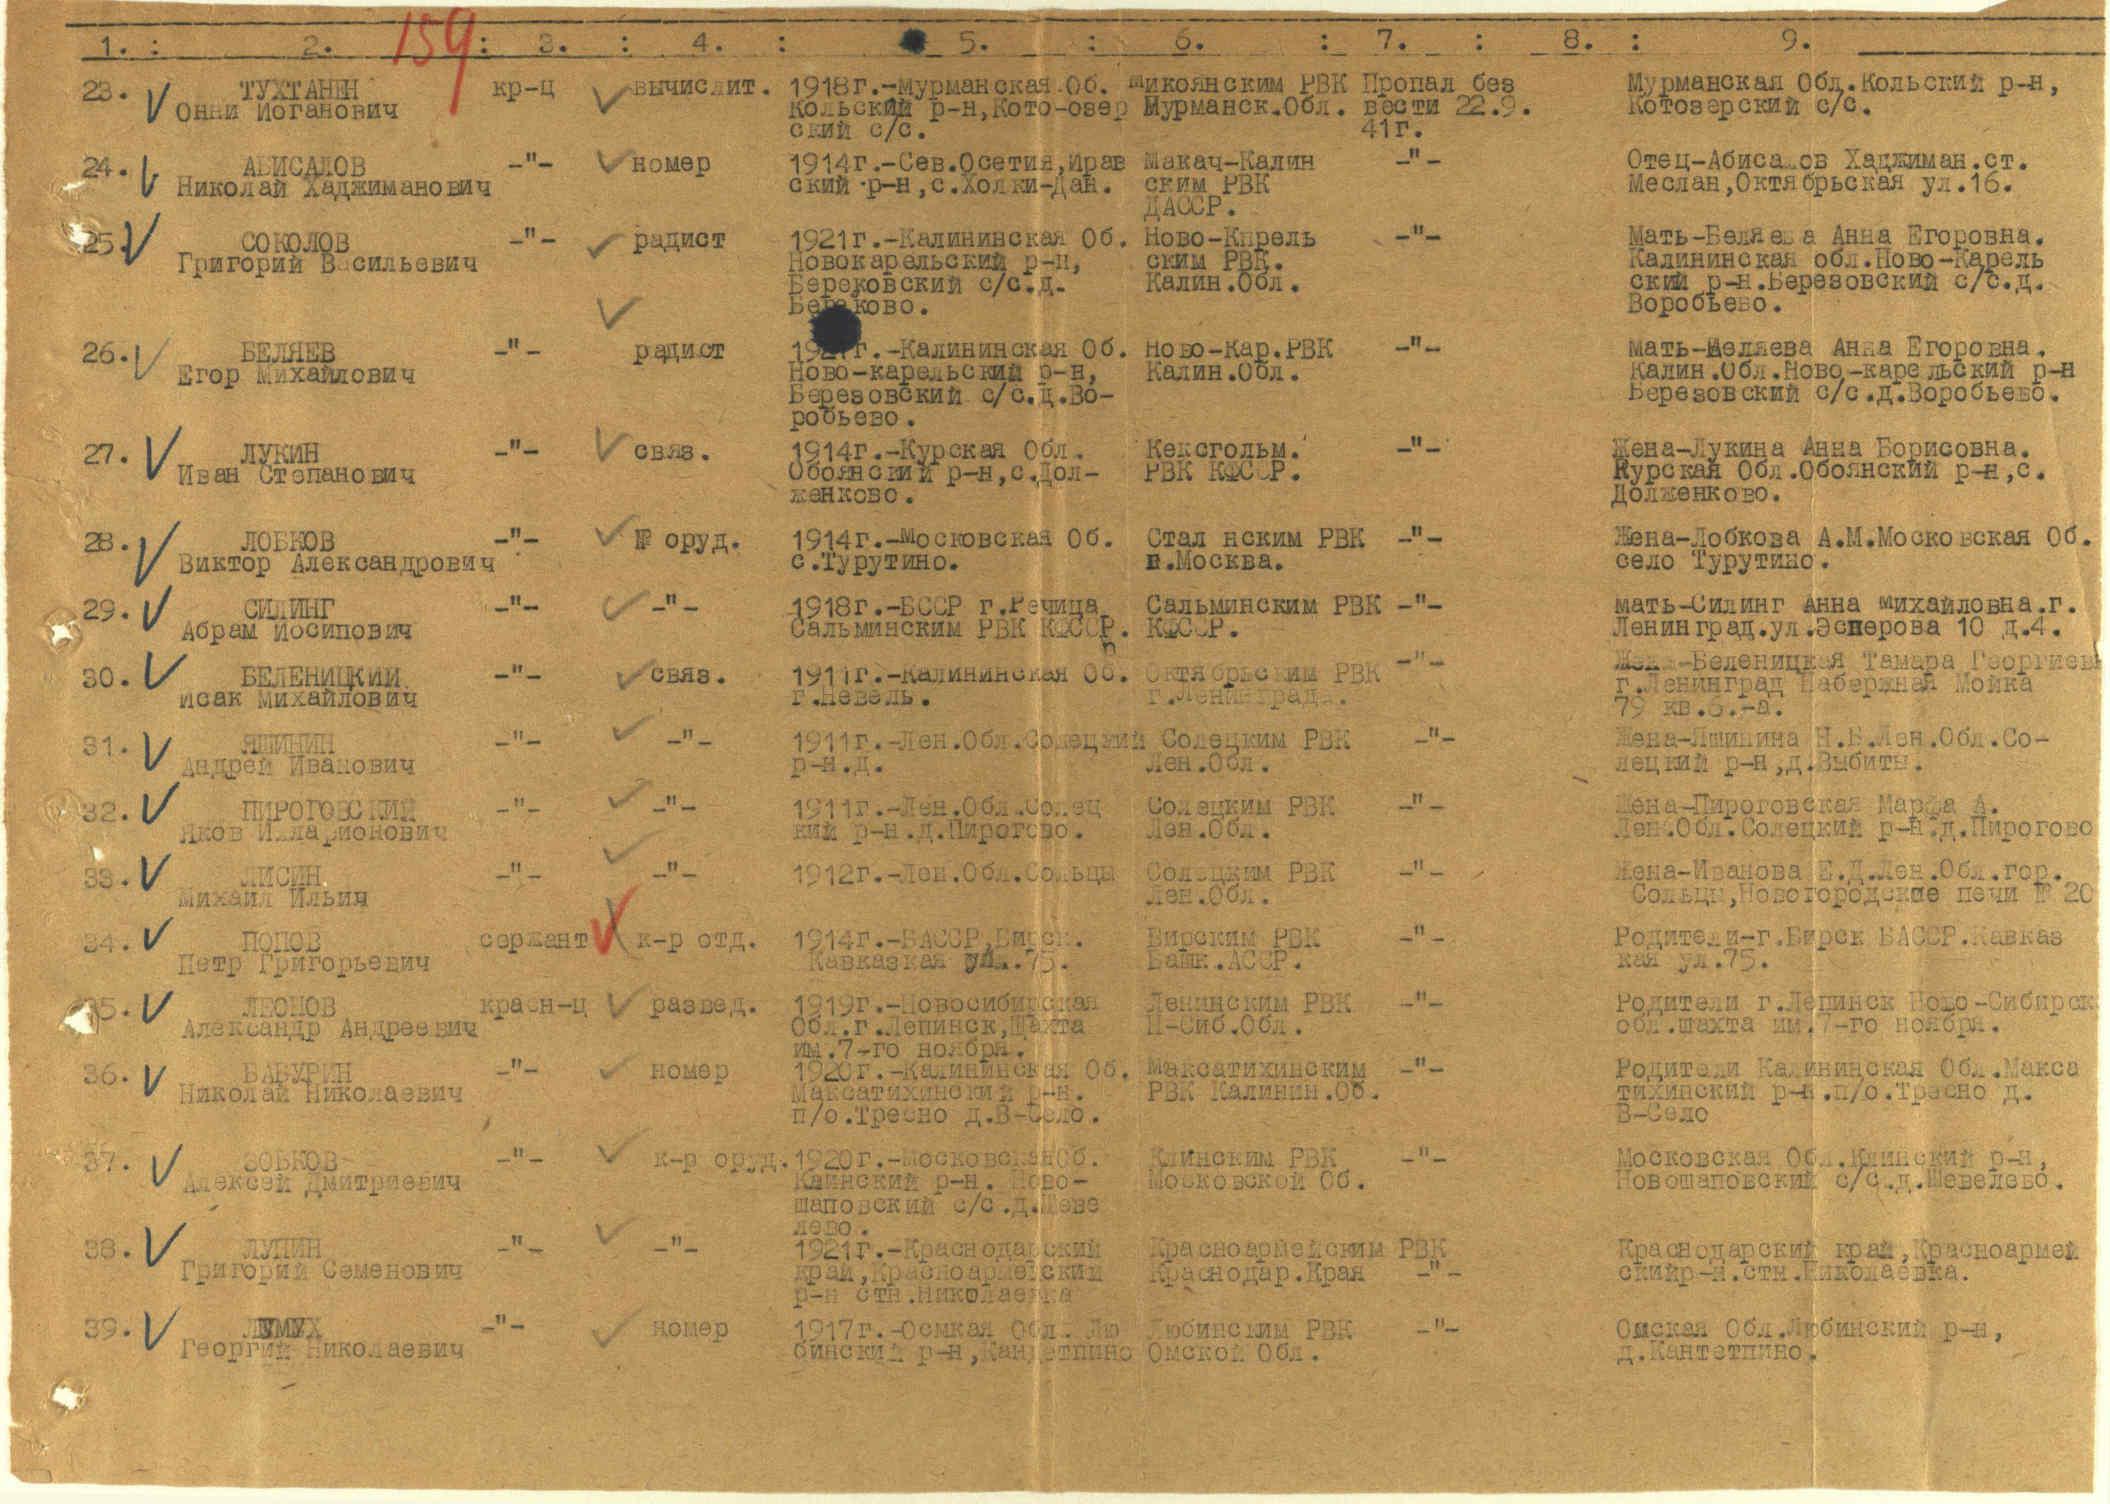 159
1. : 2. : 3. : 4. : 5. : 6. : 7. : 8. : 9.
23. ТУХТАНЕН кр-ц вычислит. 1918г.-Мурманская Об. Микоянским РВК Пропал без Мурманская Обл.Кольский р-н,
Онни Иоганович Кольский р-н,Кото-озер Мурманск.Обл. вести 22.9. Котозерский с/с.
ский с/с. 41г.
24. АБИСАЛОВ -"- номер 1914г.-Сев.Осетия,Ирав Макач-Калин -"- Отец-Абисалов Хаджиман.ст.
Николай Хаджиманович ский р-н,с.Холки-Дан. ским РВК Меслан,Октябрьская ул.16.
ДАССР.
25. СОКОЛОВ -"- радист 1921г.-Калининская Об. Ново-Кпрель -"- Мать-Беляева Анна Егоровна.
Григорий Васильевич Новокарельский р-н, ским РВК. Калининская обл.Ново-Карель
Береховский с/с.д. Калин.Обл. ский р-н.Березовский с/с.д.
ково. Воробьево.
26. БЕЛЯЕВ -"- радист г.-Калининская Об. Ново-Кар.РВК -"- Мать-Беляева Анна Егоровна.
Егор Михайлович Ново-карельский р-н, Калин.Обл. Калин.Обл.Ново-карельский р-н
Березовский с/с.д.Во- Березовский с/с.д.Воробьево.
робьево.
27. ЛУКИН -"- связ. 1914г.-Курская Обл. Кексгольм. -"- Жена-Лукина Анна Борисовна.
Иван Степанович Обоянский р-н,с.Дол- РВК КФССР. Курская Обл.Обоянский р-н,с.
женково. Долженково.
28. ЛОБКОВ -"- № оруд. 1914г.-Московская Об. Стал нским РВК -"- Жена-Лобкова А.М.Московская Об.
Виктор Александрович с.Турутино. г.Москва. село Турутино.
29. СИЛИНГ -"- -"- 1918г.-БССР г.Речица Сальминским РВК -"- Мать-Силинг Анна Михайловна.г.
Абрам Иосипович Сальминским РВК КФССР. КФССР. Ленинград.ул.Эсперова 10 д.4.
30. БЕЛЕНИЦКИЙ -"- связ. 1911г.-Калининская Об. Октябрьским РВК -"- Жена-Беленицкая Тамара Георгиев
Исак Михайлович г.Невель. г.Ленинграда. г.Ленинград Набержная Мойка
79 кв.6.-а.
31. ЯШИНИН -"- -"- 1911г.-Лен.Обл.Солецкий Солецким РВК -"- Жена-Яшинина Н.В.Лен.Обл.Со-
Андрей Иванович р-н.д. Лен.Обл. лецкий р-н,д.Выбиты.
32. ПИРОГОВСКИЙ -"- -"- 1911г.-Лен.Обл.Солец Солецким РВК -"- Жена-Пироговская Марфа А.
Яков Илларионович кий р-н.д.Пирогово. Лен.Обл. Лен.Обл.Солецкий р-н.д.Пирогово
33. ЛИСИН -"- -"- 1912г.-Лен.Обл.Сольцы Солецким РВК -"- Жена-Иванова Е.Д.Лен.Обл.гор.
Михаил Ильич Лен.Обл. Сольцы,Новогородские печи № 20
34. ПОПОВ сержант к-р отд. 1914г.-БАССР,Бирск. Бирским РВК -"- Родители-г.Бирск БАССР.Кавказ
Петр Григорьевич Кавказкая ул.75. Башк.АССР. кая ул.75.
35. ЛЕОНОВ красн-ц развед. 1919г.-Новосибирская Ленинским РВК -"- Родители г.Лепинск Ново-Сибирск
Александр Андреевич Обл.г.Лепинск,Шахта Н-Сиб.Обл. обл.шахта им.7-го ноября.
им.7-го ноября.
36. БАБУРИН -"- номер 1920г.-Калининская Об. Максатихинским -"- Родители Калининская Обл.Макса
Николай Николаевич Максатихинский р-н. РВК Калинин.Об. тихинский р-н.п/о.Тресно д.
п/о.Тресно д.В-Село. В-Село
37. ЗОБКОВ -"- к-р оруд. 1920г.-МосковскаяОб. Клинским РВК -"- Московская Обл.Клинский р-н,
Алексей Дмитриевич Клинский р-н. Ново- Московской Об. Новошаповский с/с.д.Шевелево.
шаповский с/с.д.Шеве
лево.
38. ЛУПИН -"- -"- 1921г.-Краснодарский Красноармейским РВК Краснодарский край,Красноармей
Григорий Семенович край,Красноармейский Краснодар.Края -"- скийр-н.стн.Николаевка.
р-н стн.Николаевка
39. -"- номер 1917г.-Осмкая Обл. Лю Любинским РВК -"- Омская Обл.Любинский р-н,
Георгий Николаевич бинский р-н,Кантетпино Омской Обл. д.Кантетпино.